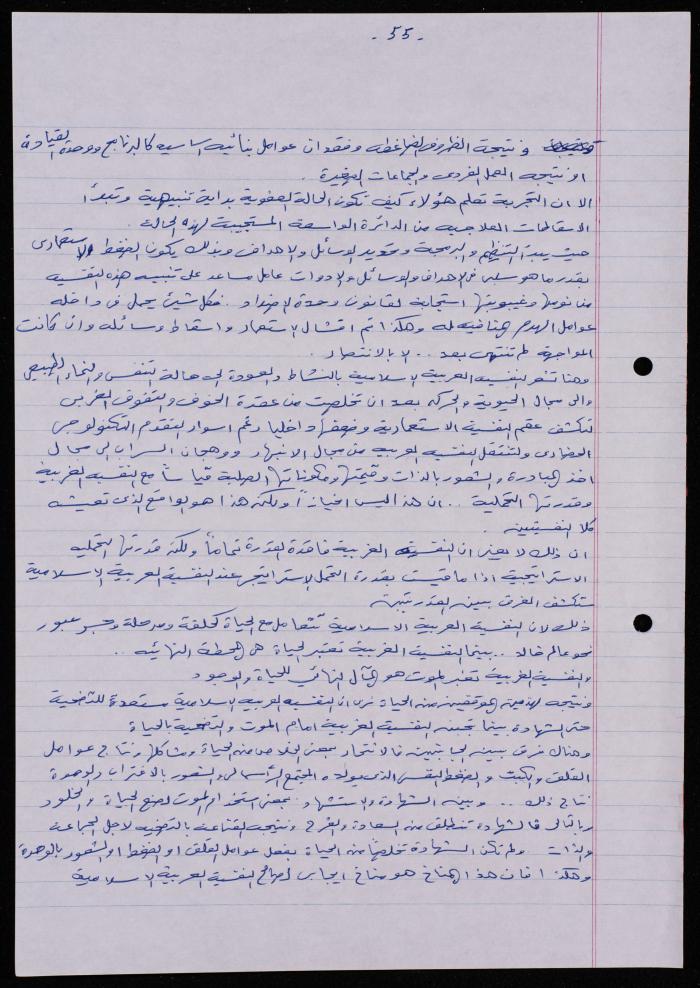 - 55 -
ونتيجة الظروف الضاغطة وفقدان عوامل بنائية اساسية كالبرنامج ووحدة القيادة
او نتيجة العمل الفردي والجماعات الصغيرة .
الا ان التجربة تعلم هؤلاء كيف تكون الحالة العفوية بداية تنبيهية وتبدأ
الاسقاطات العلاجية من الدائرة الواسعة المستجيبة لهذه الحالة .
حيث يبدأ التنظيم والبرمجة وتحديد الوسائل والاهداف وبذلك يكون الضغط الاستعماري
بقدر ما هو سلبي في الاهداف والوسائل والادوات عامل مساعد على تنبيه هذه النفسية
من نومها وغيبوبتها استجابة لقانون وحدة الاضداد . فكل شيئ يحمل في داخله
عوامل الهدم المنافية له وهكذا تم افشال الاستعمار واسقاط وسائله وان كانت
المواجهة لم تنتهي بعد .. الا بالانتصار .
وهنا تشعر النفسية العربية الاسلامية بالنشاط والعودة الى حالة التنفس والنماء الطبيعي
والى مجال الحيوية والحركة بعد ان تخلصت من عقدة الخوف والتفوق الغربي
لتكشف عقم النفسية الاستعمارية وضعفها داخليا رغم اسوار التقدم التكنولوجي
الحضاري ولتنتقل النفسية العربية من مجال الانبهار ووهجان السراب الى مجال
اخذ المبادرة والشعور بالذات وقيمتها ومكوناتها الصلبة قياسا مع النفسية الغربية
وقدرتها التحملية .. ان هذا ليس انحيازاً ولكنه هذا هو الواقع الذي تعيشه
كلا النفسيتين .
ان ذلك لا يعني ان النفسية الغربية فاقدة القدرة تماماً ولكن قدرتها التحملية
الاستراتيجية اذا ما قيست بقدرة التحمل الاستراتيجي عند النفسية العربية الاسلامية
ستكشف الفرق بين القدرتين
ذلك لان النفسية العربية الاسلامية تتعامل مع الحياة كحلقة ومرحلة وجسر عبور
نحو عالم خالد .. بينما النفسية الغربية تعتبر الحياة هي المحطة النهائية ..
والنفسية الغربية تعتبر الموت هو المآل النهائي للحياة والوجود
ونتيجة لهذين الموقفين من الحياة نرى ان النفسية العربية الاسلامية مستعدة للتضحية
حتى الشهادة بينما تجبن النفسية الغربية امام الموت والتضحية بالحياة
وهناك فرق بين الجانبين فالانتحار بمعنى الخلاص من الحياة ومشاكلها نتاج عوامل
القلق والكبت والضغط النفسي الذي يولده المجتمع الرأسمالي والشعور بالاغتراب والوحدة
نتاج ذلك .. وبين الشهادة والاستشهاد بمعنى استخدام الموت لصنع الحياة والخلود
وبالتالي فالشهادة تنطلق من السعادة والفرح ونتيجة القناعة بالتضحية لاجل الجماعة
والذات . ولم تكن الشهادة تخلصاً من الحياة بفعل عوامل القلق او الضغط او الشعور بالوحدة
وهكذا فان هذا المناخ هو مناخ ايجابي لصالح النفسية العربية الاسلامية